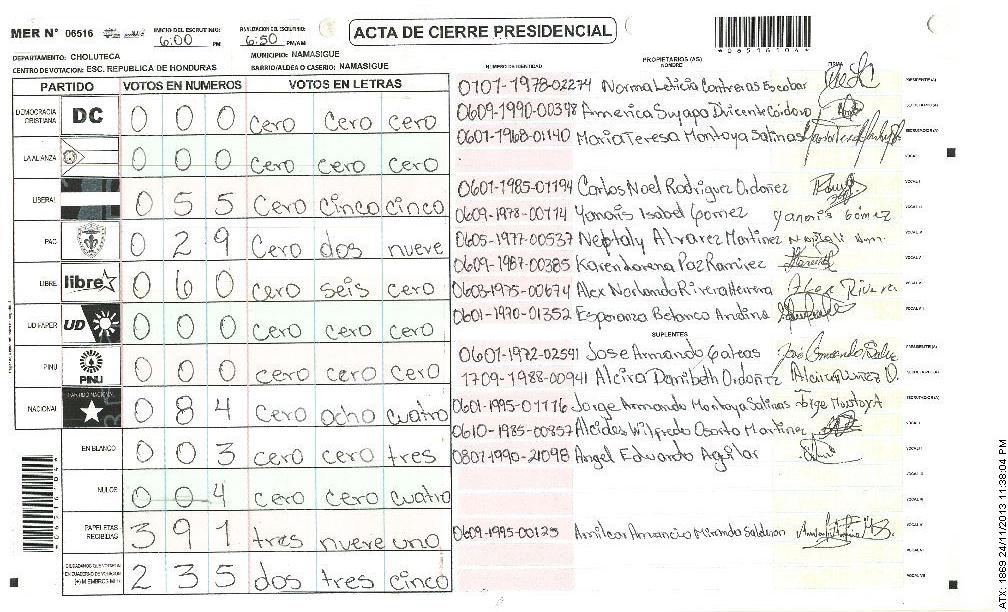 MER N° 06516
INICIO DEL ESCRUTINIO: 6:00 PM
FINALIZACION DEL ESCRUTINIO: 6:50 PM/AM
ACTA DE CIERRE PRESIDENCIAL
DEPARTAMENTO: CHOLUTECA
MUNICIPIO: NAMASIGUE
CENTRO DE VOTACION: ESC. REPUBLICA DE HONDURAS
BARRIO/ALDEA O CASERIO: NAMASIGUE
PARTIDO VOTOS EN NUMEROS VOTOS EN LETRAS
DEMOCRACIA CRISTIANA DC 0 0 0 cero cero cero
LA ALIANZA 0 0 0 cero cero cero
LIBERAL 0 5 5 Cero cinco cinco
PAC 0 2 9 Cero dos nueve
LIBRE libre 0 6 0 cero seis cero
UD FAPER UD 0 0 0 cero cero cero
PINU PINU 0 0 0 cero cero cero
NACIONAL PARTIDO NACIONAL 0 8 4 cero ocho cuatro
EN BLANCO 0 0 3 cero cero tres
NULOS 0 0 4 cero cero cuatro
PAPELETAS RECIBIDAS 3 9 1 tres nueve uno
2 3 5 dos tres cinco
NUMERO DE IDENTIDAD
PROPIETARIOS (AS)
NOMBRE
FIRMA
0101-1978-02274 Norma Leticia Contreras Escobar PRESIDENTE(A)
0609-1990-00398 America Suyapa
0601-1968-01140 Maria Teresa Montoya Salinas
VOCAL I
0601-1985-01194 Carlos Noel Rodriguez Ordoñez
0609-1978-00114 Yanoris Isabel Gomez Yanoris Gómez
0605-1977-00537 Neptaly Alvarez Martinez
0609-1987-00385 Karen Lorena Paz Ramirez
0603-1975-00674 Alex Norlando Rivera Herrera Alex Rivera
0601-1970-01352 Esperanza Betanco Andino
SUPLENTES
0601-1972-02591 Jose Armando
1709-1988-00941 Alcira Danibeth Ordoñez
0601-1995-01116 Jorge Armando Montoya Salinas Jorge Montoya
0610-1985-00857 Alcides Wilfredo Osorto Martinez
0801-1990-21098 Angel Eduardo Aguilar
0609-1995-00125 Amilcar Amancio Miranda
ATX: 1869 24/11/2013 11:38:04 PM